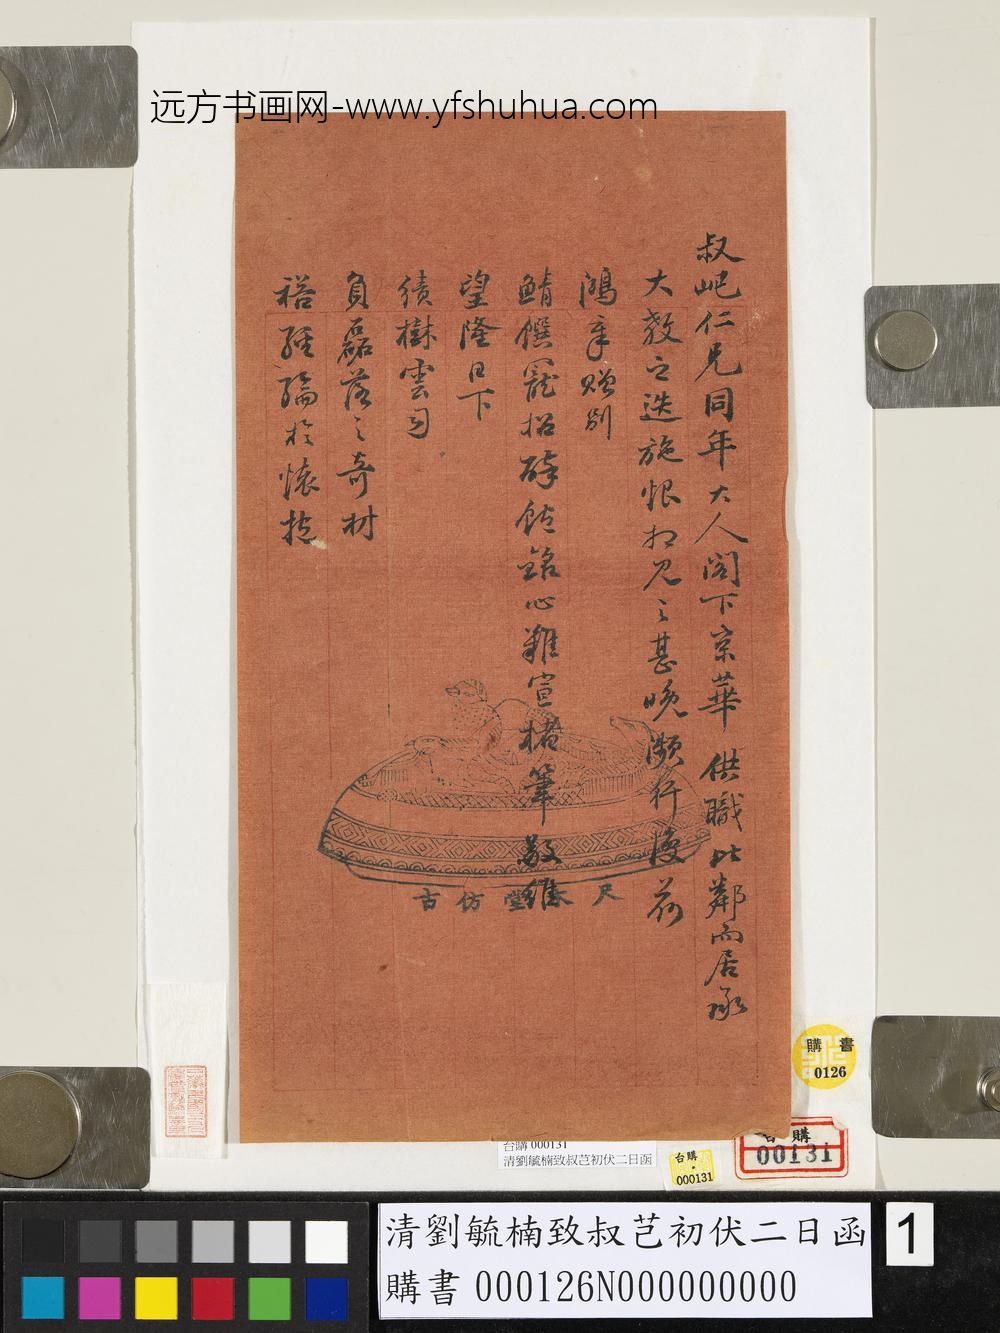 远方书画网-www.yfshuhua.com
叔屺仁兄同年大人閣下京華供職比鄰而居承
大教之迭施恨相見之甚晚瀕行復荷
鴻章贈別
鯖饌寵招醉飽銘心難宣楮筆敬維
望隆日下
績樹雲司
負磊落之奇材
裕經綸於懷抱
尺木堂仿古
購書
0126
台購 000131
清劉毓楠致叔芑初伏二日函
台購
000131
購
00131
清劉毓楠致叔芑初伏二日函
購書 000126N000000000
1